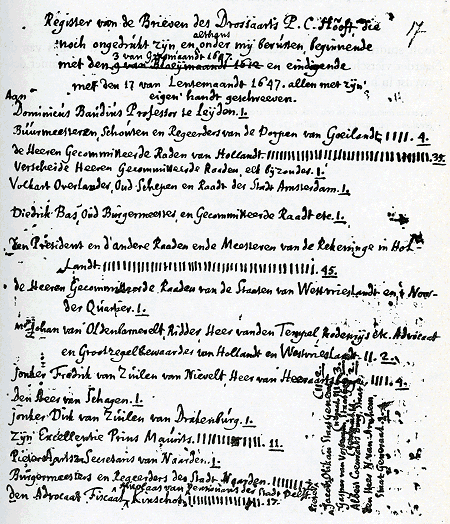 Register van de Brieven des Drossaarts P. C. Hooft, die 17
althans
noch ongedrukt zijn, en onder my berusten, beginnende
3 van
met den en eindigende
met den 17 van Lentemaandt 1647. allen met zijn
eigen handt geschreeven.
Aan
Dominicus Baudius Professor te Leijden. 1.
Buurmeesteren, Schouten en Regeerders van de Dorpen van Goeilandt IIII. 4.
de Heeren Gecommitteerde Raden van Hollandt.
Verscheide Heeren Gecommitteerde Raaden, elk bijzonder. 1.
Volkart Overlander, Oud Schepen en Raadt der Stadt Amsterdam. 1.
Diedrik Bas, Oud Burgermeester, en Gecommitteerde Raadt etc. 1.
Den President en d'andere Raaden ende Meesteren van de Rekeninge in Hol
landt. 45.
de Heeren Gecommitteerde Raaden van de Staaten van Westvrieslandt en 't Noor
der Quartier. 1.
Mr. Johan van Oldenbarnevelt, Ridder Heer vanden Tempel, Rodenrijs etc. Advocaat
en Grootzegelbewaarder van Hollandt en Westvrieslandt. II. 2.
Jonker Fredrik van Zuilen van Nievelt Heer van Heeraartsberge IIII. 4.
Den Heer van Schagen. 1.
Jonker Dirk van Zuilen van Drakenburg. 1.
Zijn Excellentie Prins Maurits. 11.
Pieter Aartsz. Secretaris van Naarden. 1.
Burgermeesters en Regeerders der Stadt Naarden
Nicolaas van Pensionaris der Stadt Delft
den Advocaat Fiscaal Kinschot 17.